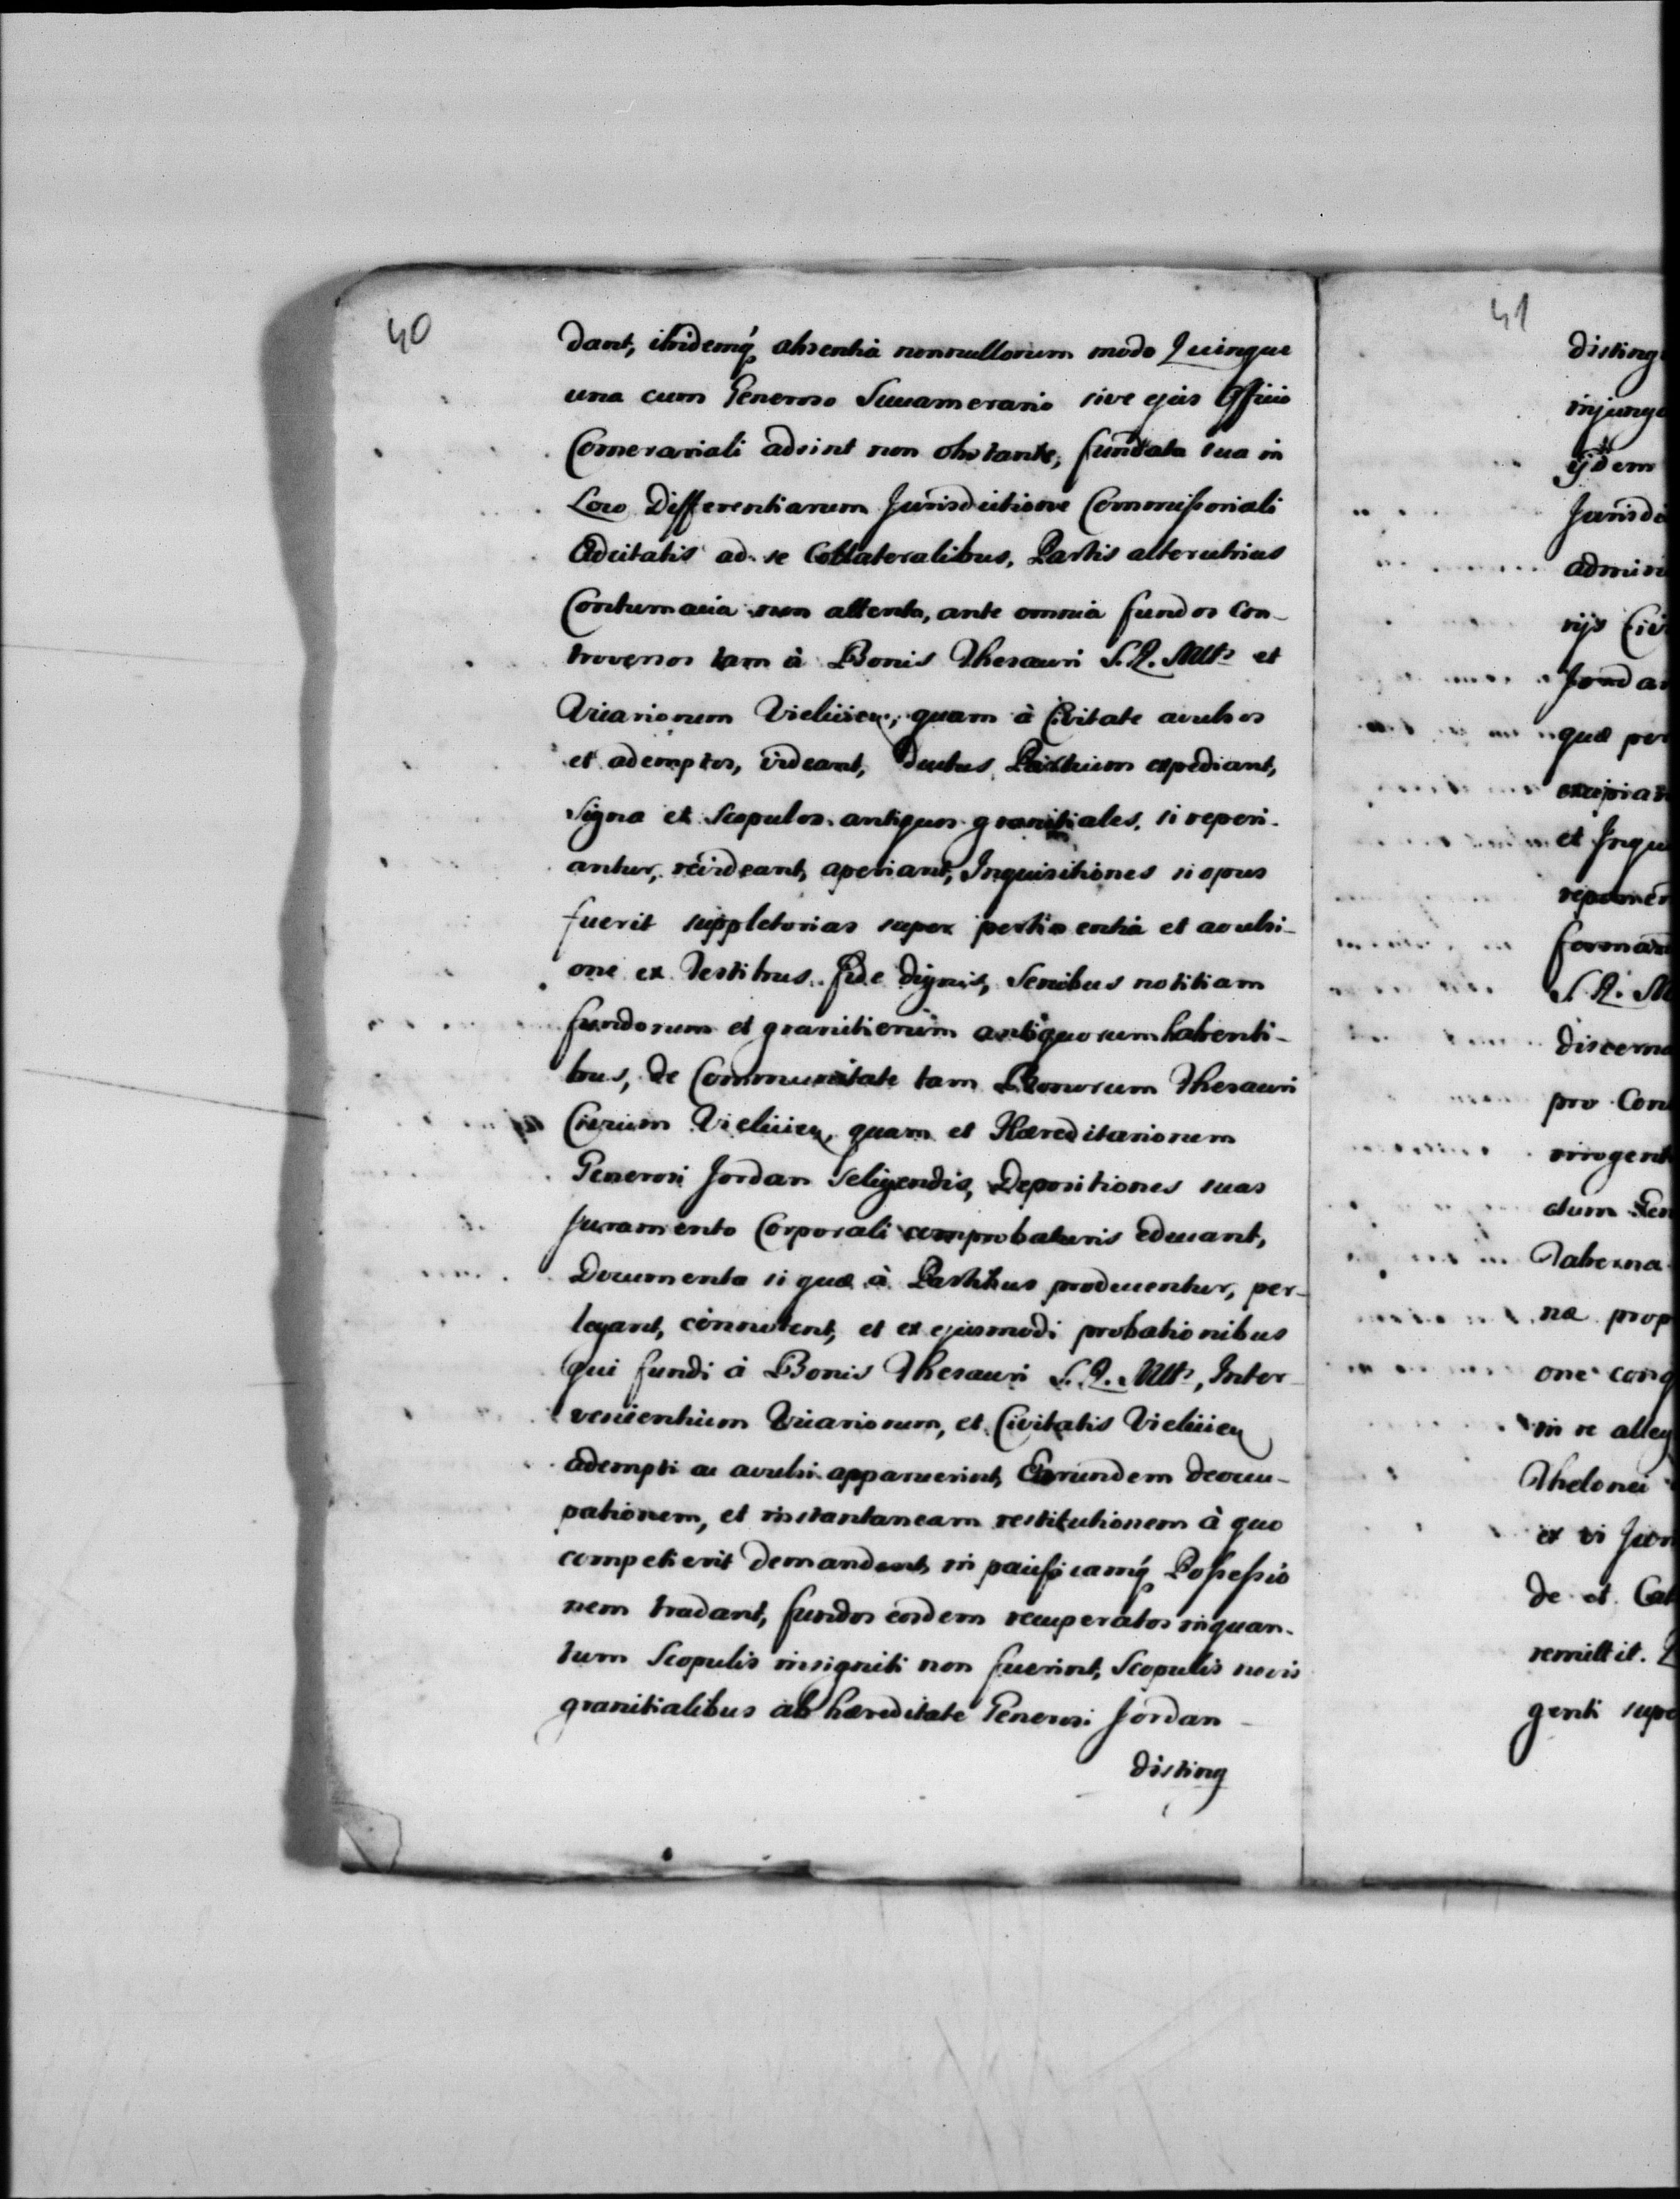 40
dant, ibidemq́ absentiâ nonnullorum modo Quinque
una cum Generoso Succamerario sive ejus Officio
Comerariali adsint non obstante, fundata sua in
Loco Differentiarum Jurisdictione Commissoriali
Adcitatis ad se Collateralibus, Partis alterutrius
Contumacia non attenta, ante omnia fundos con-
troversos tam à Bonis Thesauri S. R. Mttis et
Vicariorum Vielicien, quam à Civitate avulsos
et ademptos, videant, ductus Partium expediant,
Signa et Scopulos antiquos granitiales, si reperi-
antur, revideant, aperiant, Inquisitiones si opus
fuerit suppletorias super pertinentia et avulsi-
one ex Testibus fide dignis, Senibus notitiam
fundorum et granitierum antiquorum habenti-
bus, de Communitate tam Bonorum Thesauri
Civium Vielicien, quam et Hæreditariorum
Generosi Jordan Seligendis, Depositiones suas
Juramento Corporali comprobaturis educant,
Documenta si quæ à Partibus producentur, per-
legant, connotent, et ex ejusmodi probationibus
qui fundi à Bonis Thesauri S. R. Mttis, Inter-
venientium Vicariorum, et Civitatis Vielicien
adempti ac avulsi apparuerint, Eorundem deoccu-
pationem, et instantaneam restitutionem à quo
competierit demandent, in pacificamq́ Possessio
nem tradant, fundos eosdem recuperatos inquan-
tum Scopulis insigniti non fuerint, Scopulis novis
granitialibus ab hæreditate Generosi Jordan
disting
41
disting
injung
ijdem
Jurisdi
admini
rijs Civ
Jordan
quæ per
excipian
et Inqu
S. R. M
discern
pro Con
Taberna
na prop
one cong
in re alleg
Thelonei
ex vi Jur
de et Cal
remittit.
genti supe